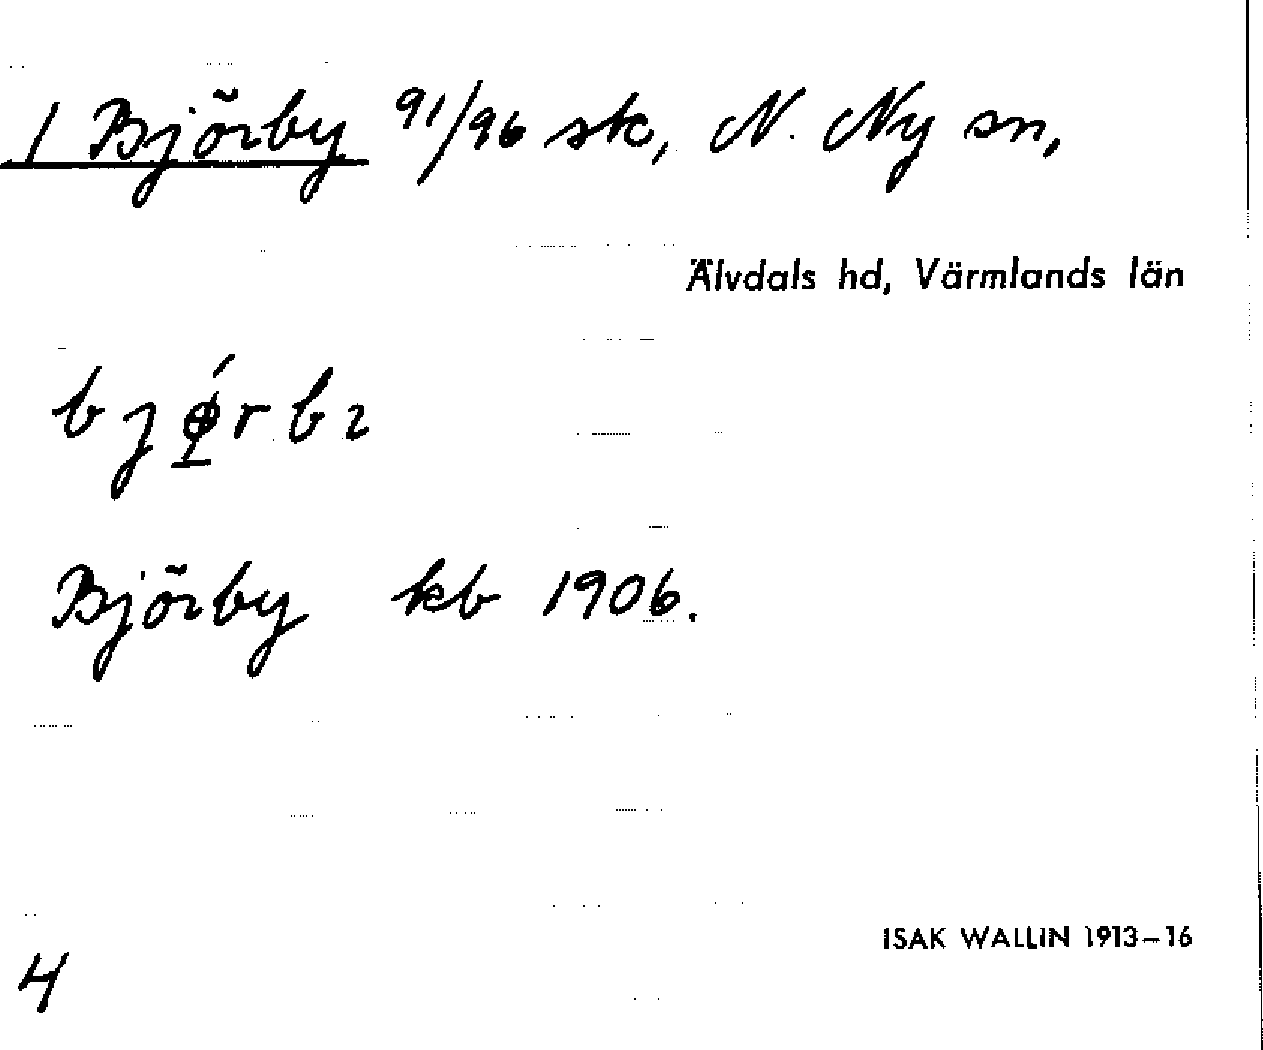 1 Björby 91/96 sk, N. Ny sn,
Älvdals hd, Värmlands län
Björby kb 1906.
ISAK WALLIN 1913–16
4